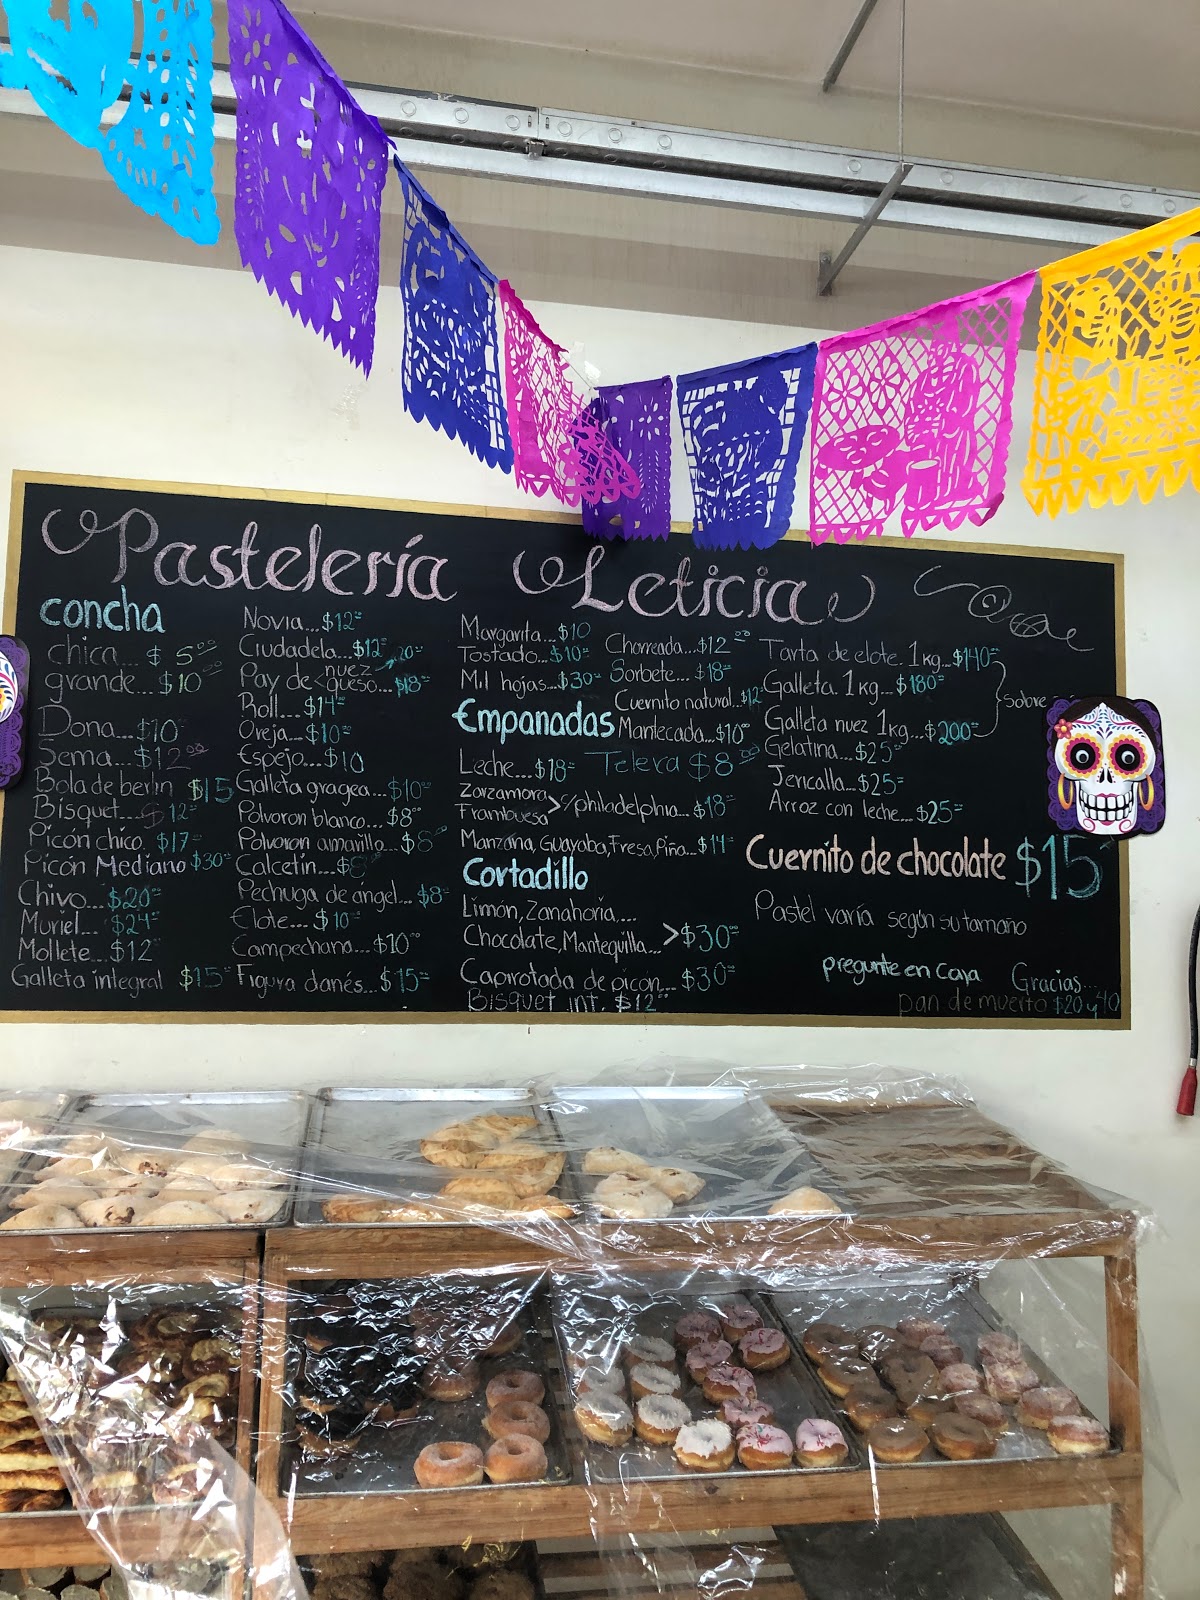 Pastelería Leticia
concha
chica... $ 5.00
grande... $10.00
Dona...$10=
Sema...$12.00
Bola de berlin $15
Bisquet... $12=
Picón chico. $17=
Picón Mediano $30=
Chivo...$20=
Muriel... $24=
Mollete...$12
Galleta integral $15=
Novia...$12=
Ciudadela...$12=
Pay de < nuez 20= queso...$18=
Roll...$14=
Oreja...$10=
Espejo...$10
Galleta gragea...$10=
Polvoron blanco...$8=
Polvoron amarillo...$8=
Calcetin...$8
Pechuga de ángel...$8=
Elote...$10=
Campechana...$10=
Figura danés...$15=
Margarita...$10
Tostado...$10=
Mil hojas...$30=
Empanadas
Leche...$18=
Zarzamora
Frambuesa > c/philadelphia...$18=
Manzana, Guayaba, Fresa, Piña...$14=
Cortadillo
Limón, Zanahoria,...
Chocolate, Mantequilla... >$30=
Capirotada de picón... $30=
Bisquet int. $12=
Chorreada...$12.00
Sorbete...$18=
Cuernito natural...$12=
Mantecada...$10=
Telera $8.00
Tarta de elote. 1kg...$140=
Galleta. 1kg...$180=
Galleta nuez 1kg...$200=
Sobre
Gelatina...$25=
Jericalla...$25=
Arroz con leche...$25=
Cuernito de chocolate $15
Pastel varía según su tamaño
pregunte en caja Gracias...
pan de muerto $20 y 40